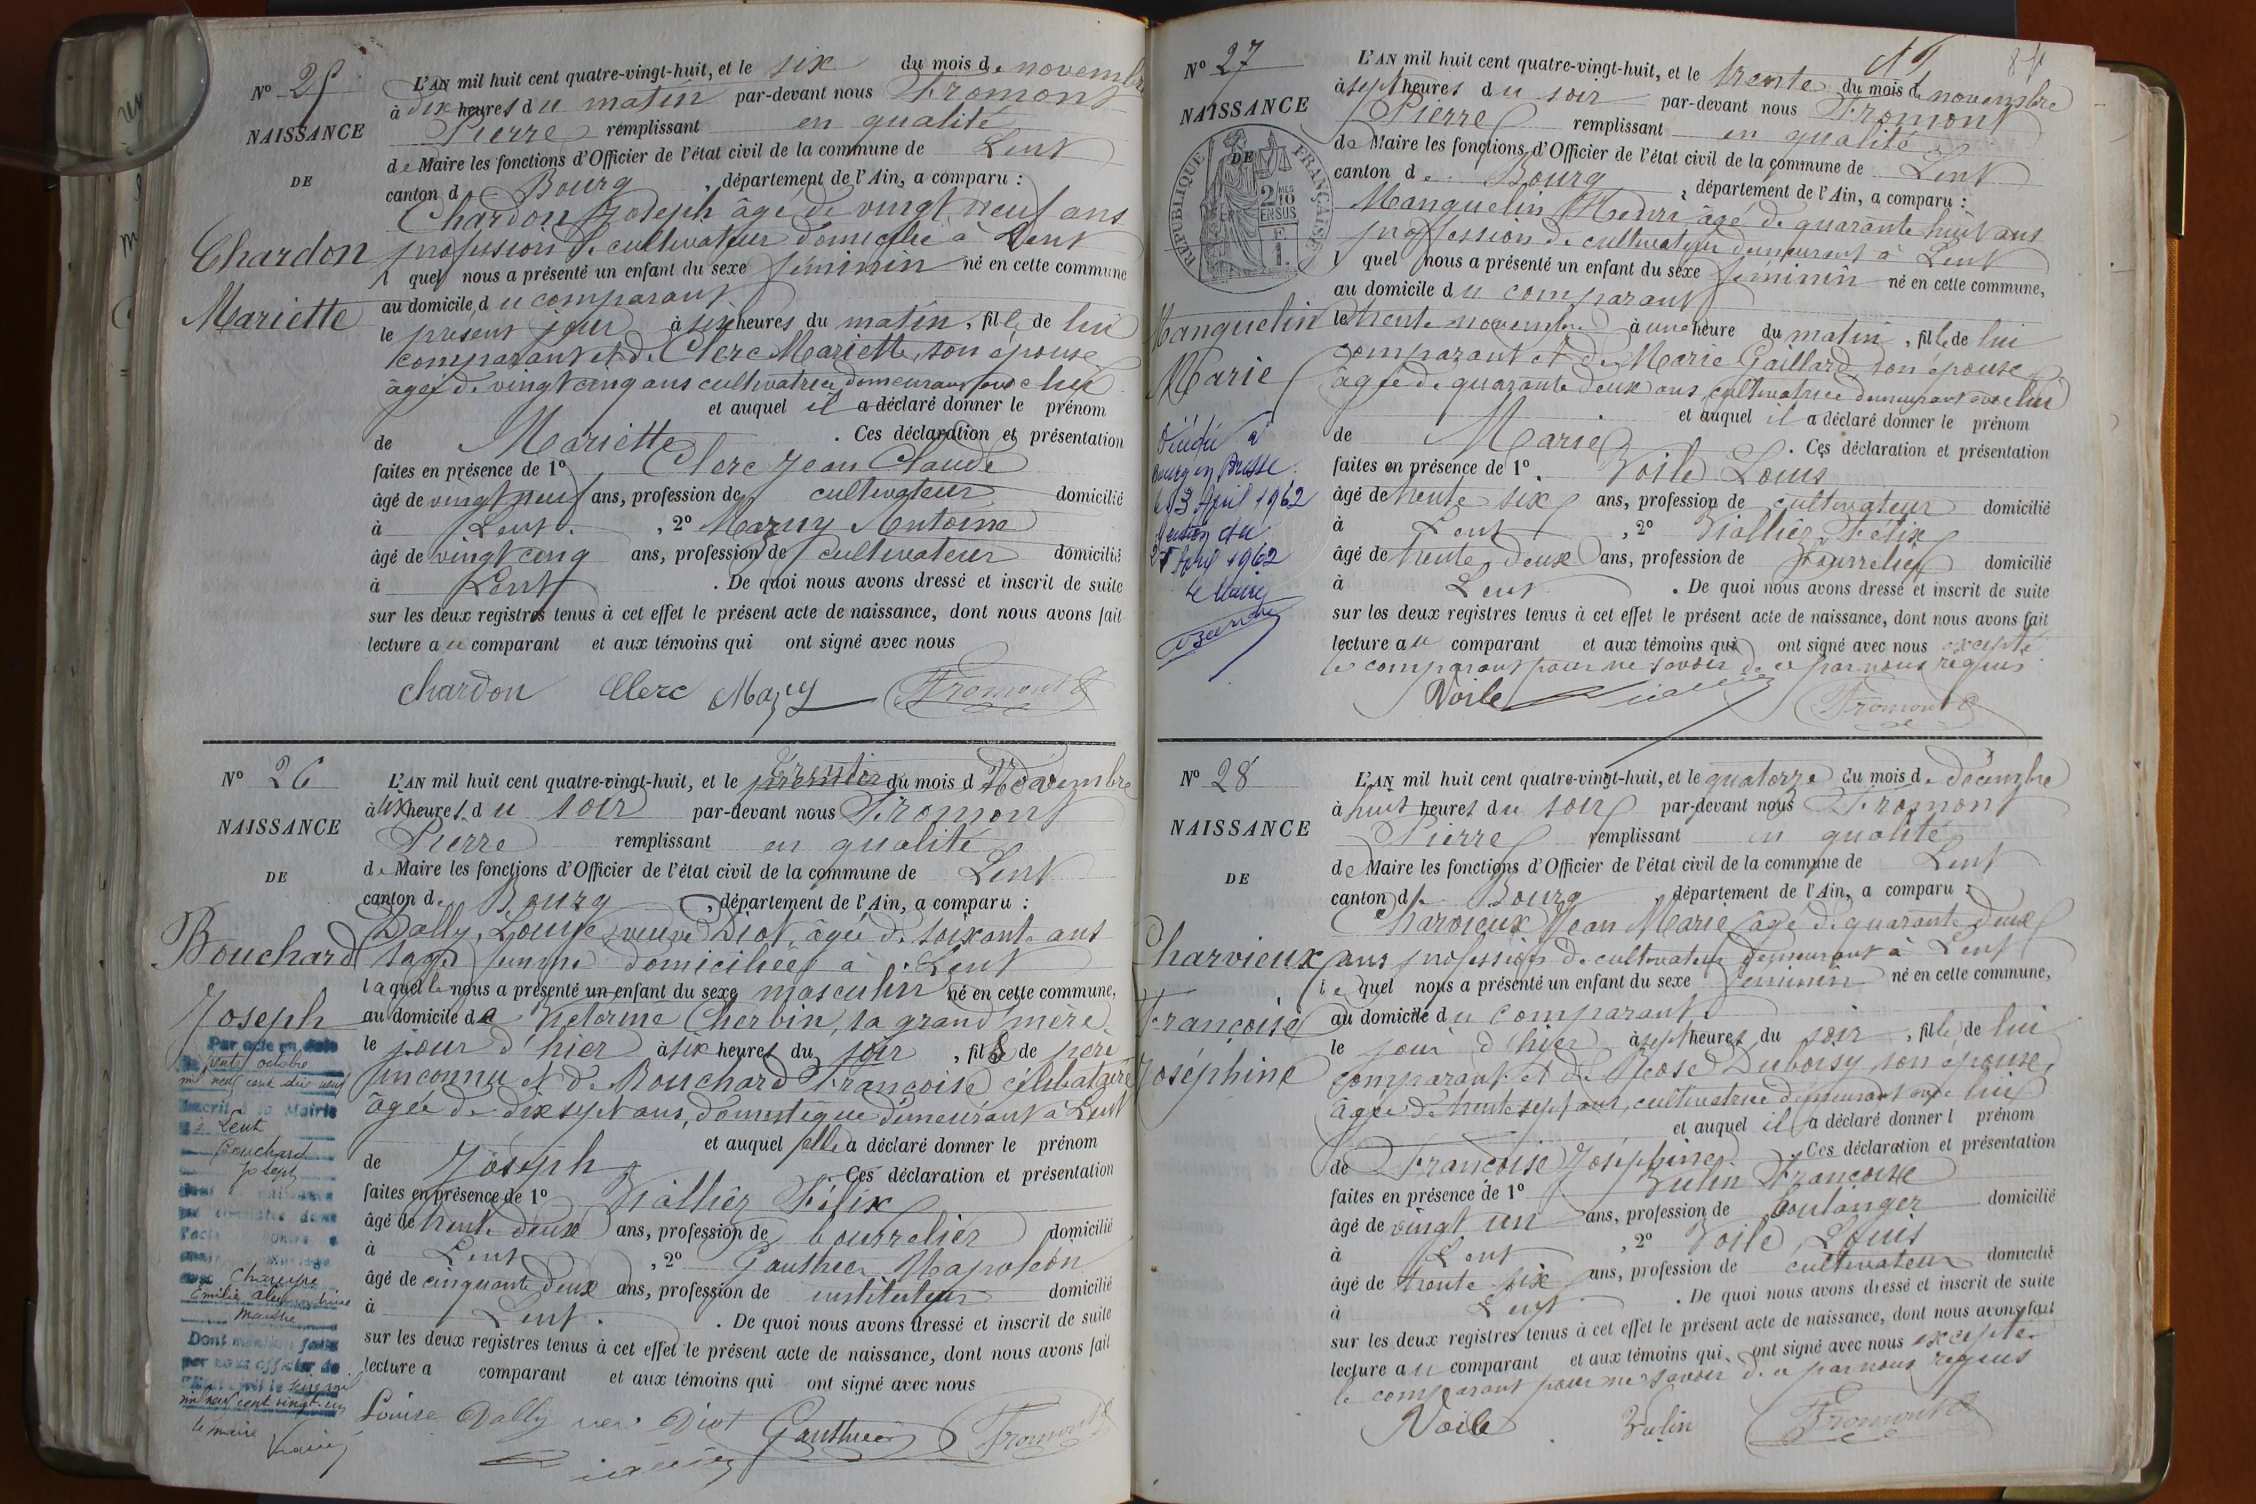 N° 25
NAISSANCE
DE
Chardon
Mariette
L'AN mil huit cent quatre-vingt-huit, et le six du mois de novembre
à dix heures du matin par-devant nous Fromont
Pierre remplissant en qualité
de Maire les fonctions d'Officier de l'état civil de la commune de Lent
canton de Bourg, département de l'Ain, a comparu :
Chardon Joseph âgé de vingt neuf ans
profession de cultivateur domicilié à Lent
l quel nous a présenté un enfant du sexe féminin né en cette commune
au domicile du comparant
le présent jour à six heures du matin, fille de lui
comparant et de Clerc Mariette, son épouse
âgée de vingt cinq ans cultivatrice demeurant avec lui
et auquel il a déclaré donner le prénom
de Mariette. Ces déclaration et présentation
faites en présence de 1° Clerc Jean Claude
âgé de vingt neuf ans, profession de cultivateur domicilié
à Lent, 2° Mazuy Antoine
âgé de vingt cinq ans, profession de cultivateur domicilié
à Lent. De quoi nous avons dressé et inscrit de suite
sur les deux registres tenus à cet effet le présent acte de naissance, dont nous avons fait
lecture au comparant et aux témoins qui ont signé avec nous
chardon Clerc Mazuy Fromont
N° 26
NAISSANCE
DE
Bouchard
Joseph
Par acte en date
octobre
mil neuf cent dix neuf
inscrit à la Mairie
de Lent
Bouchard
Joseph
Emilie
Dont mention faite
par nous officier de
mil neuf cent vingt-un
le maire
L'AN mil huit cent quatre-vingt-huit, et le premier du mois d Novembre
à six heures du soir par-devant nous Fromont
Pierre remplissant en qualité
de Maire les fonctions d'Officier de l'état civil de la commune de Lent
canton de Bourg, département de l'Ain, a comparu :
Dally, Louise, veuve Diot, âgée de soixante ans
sage femme domiciliée à Lent
laquelle nous a présenté un enfant du sexe masculin né en cette commune,
au domicile de Victorine Cherbin, sa grand mère
le jour d'hier à six heures du soir, fils de père
inconnu et de Bouchard Françoise célibataire
âgée de dix sept ans, domestique demeurant à Lent
et auquel elle a déclaré donner le prénom
de Joseph. Ces déclaration et présentation
faites en présence de 1° Viallier Félix
âgé de trente deux ans, profession de bourrelier domicilié
à Lent, 2° Gauthier Napoléon
âgé de cinquante deux ans, profession de instituteur domicilié
à Lent. De quoi nous avons dressé et inscrit de suite
sur les deux registres tenus à cet effet le présent acte de naissance, dont nous avons fait
lecture a comparant et aux témoins qui ont signé avec nous
Louise Dally Diot Gauthier Fromont
84
N° 27
NAISSANCE
DE
RÉPUBLIQUE FRANÇAISE
Manquelin
Marie
Décédée à
Bourg en Bresse
le 3 Avril 1962
Mention du
Avril 1962
Le Maire
L'AN mil huit cent quatre-vingt-huit, et le trente du mois de novembre
à sept heures du soir par-devant nous Fromont
Pierre remplissant en qualité
de Maire les fonctions d'Officier de l'état civil de la commune de Lent
canton de Bourg, département de l'Ain, a comparu :
Manquelin Henri âgé de quarante huit ans
profession de cultivateur demeurant à Lent
l quel nous a présenté un enfant du sexe féminin né en cette commune,
au domicile du comparant
le trente novembre à une heure du matin, fille de lui
comparant et de Marie Gaillard son épouse
âgée de quarante deux ans, cultivatrice demeurant avec lui
et auquel il a déclaré donner le prénom
de Marie. Ces déclaration et présentation
faites en présence de 1° Voile Louis
âgé de trente six ans, profession de cultivateur domicilié
à Lent, 2° Viallier Félix
âgé de trente deux ans, profession de bourrelier domicilié
à Lent. De quoi nous avons dressé et inscrit de suite
sur les deux registres tenus à cet effet le présent acte de naissance, dont nous avons fait
lecture au comparant et aux témoins qui ont signé avec nous excepté
le comparant pour ne savoir de ce par nous requis
Voile Fromont
N° 28
NAISSANCE
DE
Charvieux
Françoise
Joséphine
L'AN mil huit cent quatre-vingt-huit, et le quatorze du mois de décembre
à huit heures du soir par-devant nous Fromont
Pierre remplissant en qualité
de Maire les fonctions d'Officier de l'état civil de la commune de Lent
canton de Bourg, département de l'Ain, a comparu :
Charvieux Jean Marie âgé de quarante deux
ans profession de cultivateur demeurant à Lent
le quel nous a présenté un enfant du sexe féminin né en cette commune,
au domicile du comparant
le jour d'hier à sept heures du soir, fille de lui
comparant et de Rose Duboisy son épouse,
âgée de trente sept ans, cultivatrice demeurant avec lui
et auquel il a déclaré donner l prénom
de Françoise Joséphine. Ces déclaration et présentation
faites en présence de 1° Vulin Françoise
âgé de vingt un ans, profession de boulanger domicilié
à Lent, 2° Voile Louis
âgé de trente six ans, profession de cultivateur domicilié
à Lent. De quoi nous avons dressé et inscrit de suite
sur les deux registres tenus à cet effet le présent acte de naissance, dont nous avons fait
lecture au comparant et aux témoins qui ont signé avec nous excepté
le comparant pour ne savoir de ce par nous requis
Voile Vulin Fromont